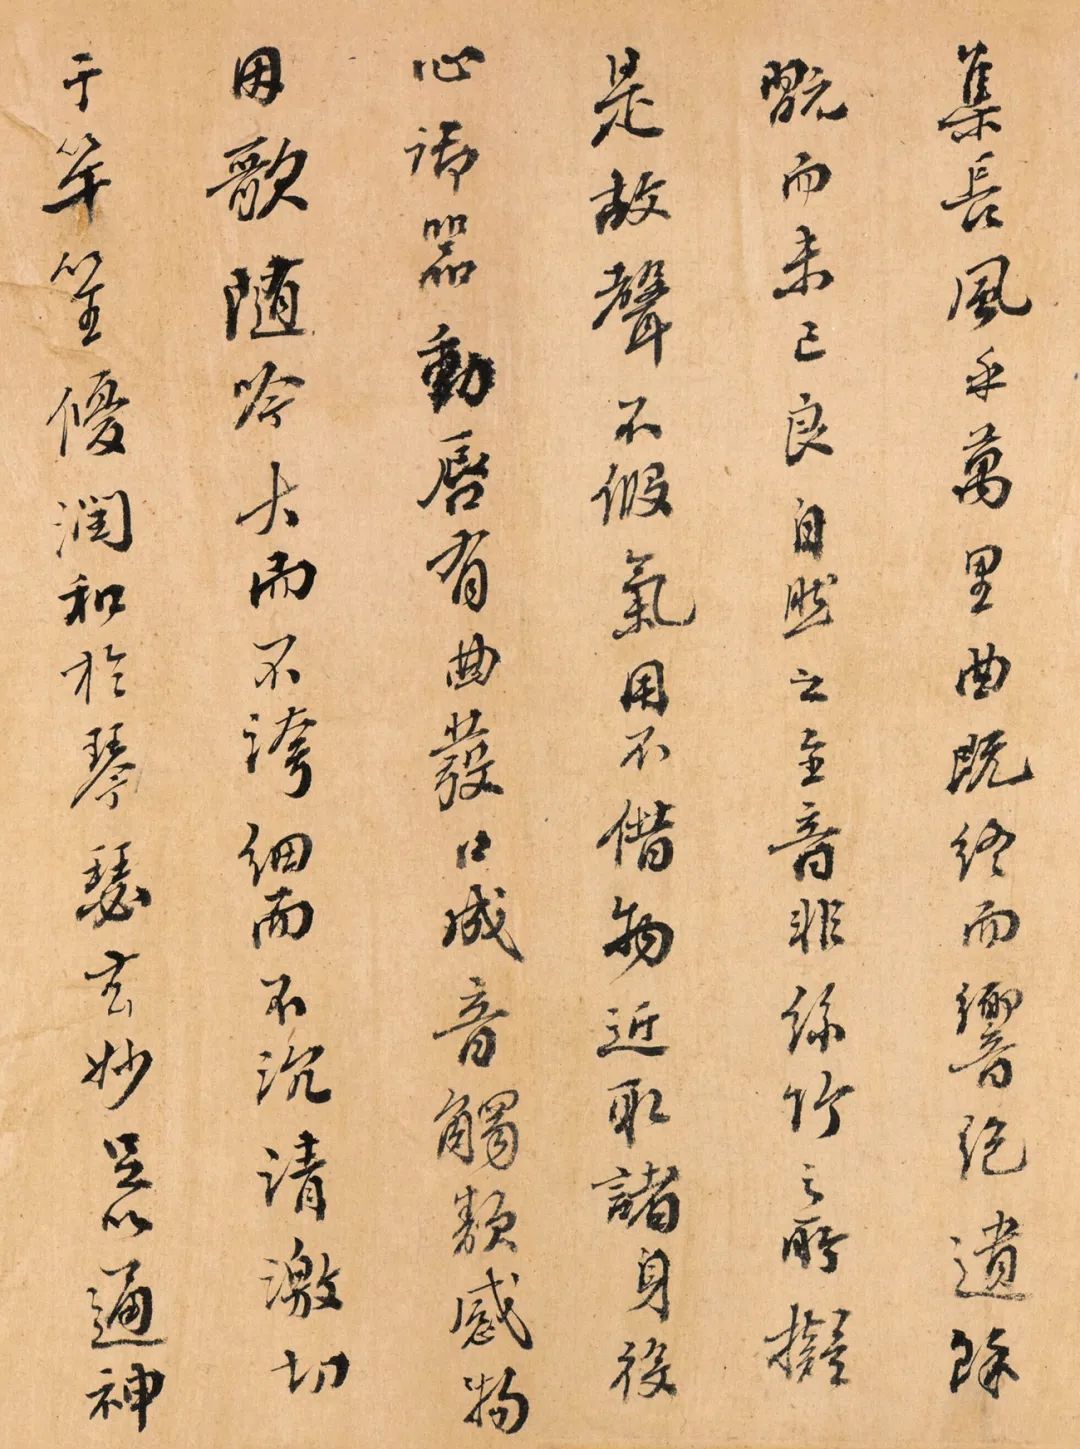 集長風乎萬里曲既終而響絕遺餘
翫而未已良自然之至音非絲竹之所擬
是故聲不假氣用不借物近取諸身役
心御器動唇有曲發口成音觸類感物
因歌随吟大而不誇細而不沉請激切
于竽笙優潤和於琴瑟玄妙足以通神